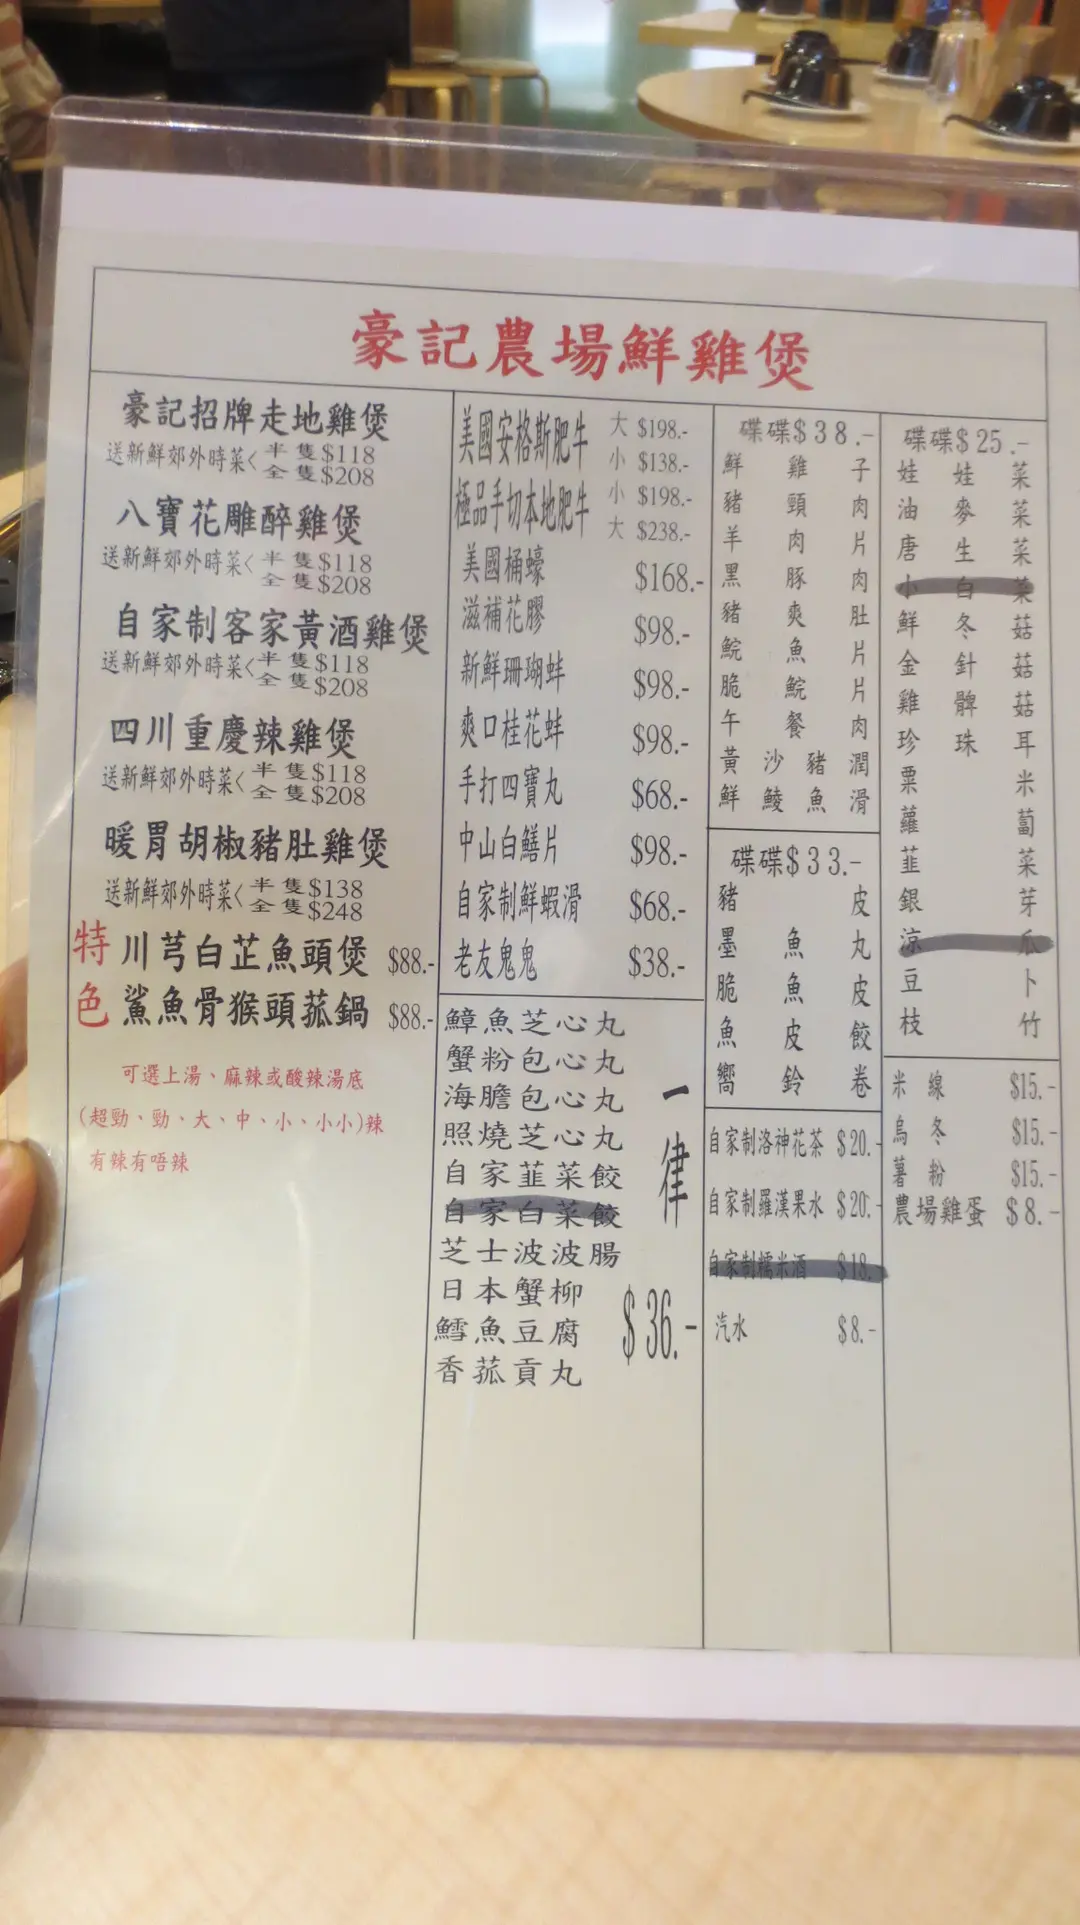 豪記農場鮮雞煲
豪記招牌走地雞煲
送新鮮郊外時菜< 半隻$118
全隻$208
八寶花雕醉雞煲
送新鮮郊外時菜< 半隻$118
全隻$208
自家制客家黃酒雞煲
送新鮮郊外時菜< 半隻$118
全隻$208
四川重慶辣雞煲
送新鮮郊外時菜< 半隻$118
全隻$208
暖胃胡椒豬肚雞煲
送新鮮郊外時菜< 半隻$138
全隻$248
特色
川芎白芷魚頭煲 $88.-
鯊魚骨猴頭菰鍋 $88.-
可選上湯、麻辣或酸辣湯底
(超勁、勁、大、中、小、小小)辣
有辣有唔辣
美國安格斯肥牛 大 $198.-
小 $138.-
極品手切本地肥牛 小 $198.-
大 $238.-
美國桶蠔 $168.-
滋補花膠 $98.-
新鮮珊瑚蚌 $98.-
爽口桂花蚌 $98.-
手打四寶丸 $68.-
中山白鱔片 $98.-
自家制鮮蝦滑 $68.-
老友鬼鬼 $38.-
鱆魚芝心丸
蟹粉包心丸
海膽包心丸
照燒芝心丸
自家韮菜餃
自家白菜餃
芝士波波腸
日本蟹柳
鱈魚豆腐
香菰貢丸
一律 $36.-
碟碟$38.-
鮮雞子
豬頸肉
羊肉片
黑豚肉
豬爽肚
鯇魚片
脆鯇片
午餐肉
黃沙豬潤
鮮鯪魚滑
碟碟$33.-
豬皮
墨魚丸
脆魚皮
魚皮餃
嚮鈴卷
自家制洛神花茶 $20.-
自家制羅漢果水 $20.-
自家制糯米酒 $18.
汽水 $8.-
碟碟$25.-
娃娃菜
油麥菜
唐生菜
小白菜
鮮冬菇
金針菇
雞髀菇
珍珠耳
粟米
蘿蔔
韮菜
銀芽
涼瓜
豆卜
枝竹
米線 $15.-
烏冬 $15.-
薯粉 $15.-
農場雞蛋 $8.-